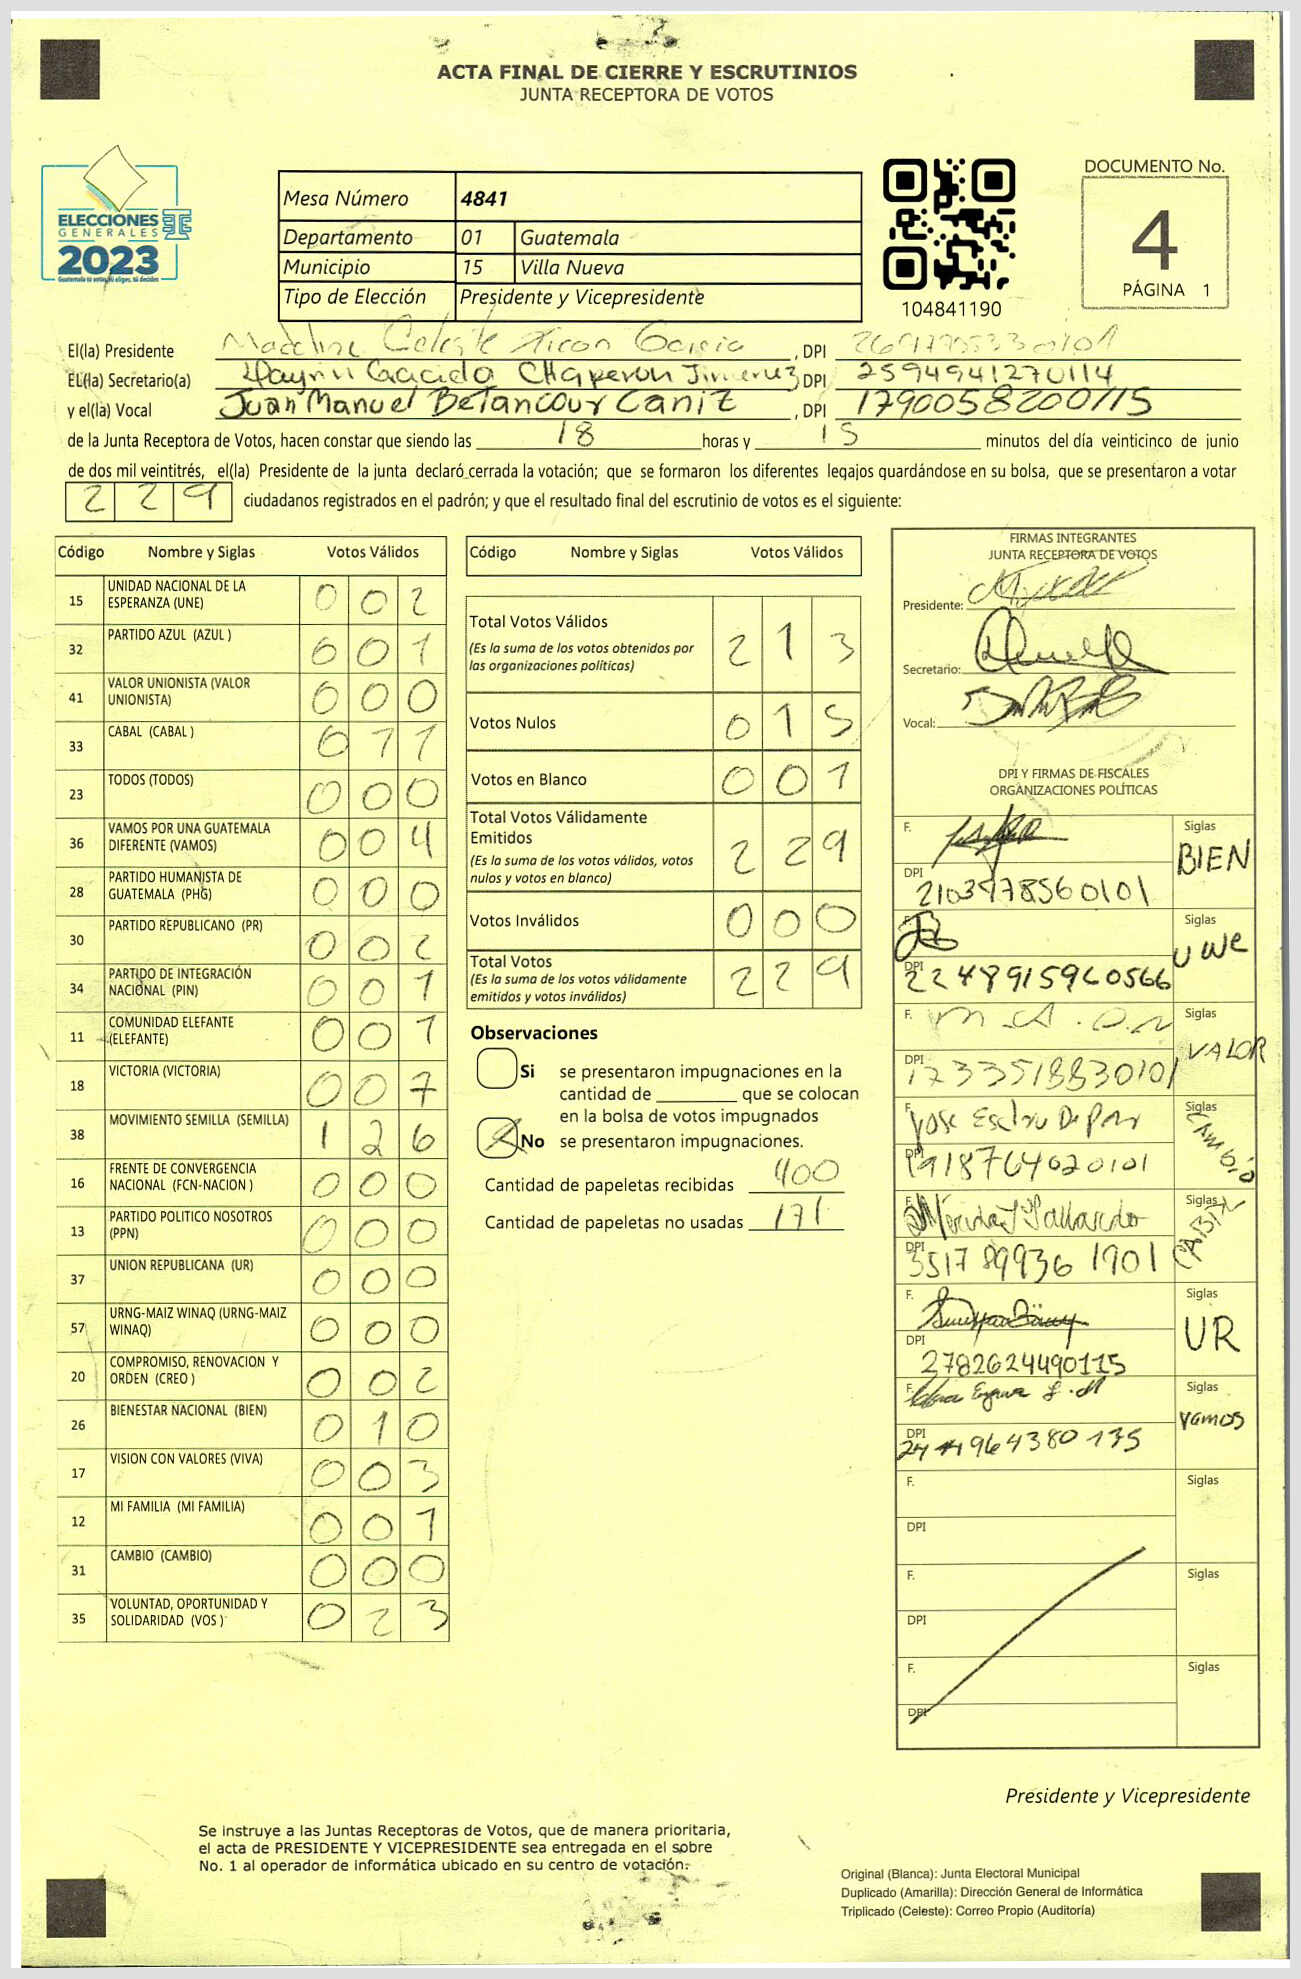 ACTA FINAL DE CIERRE Y ESCRUTINIOS
JUNTA RECEPTORA DE VOTOS
ELECCIONES
GENERALES
2023
Guatemala tú votas, tú eliges, tú decides
Mesa Número 4841
Departamento 01 Guatemala
Municipio 15 Villa Nueva
Tipo de Elección Presidente y Vicepresidente
104841190
DOCUMENTO No.
4
PÁGINA 1
El(la) Presidente Madeline Celeste García , DPI
EL(la) Secretario(a) Chaperon Jimenez DPI 2594941270114
y el(la) Vocal Juan Manuel Betancour Caniz , DPI 1790058200115
de la Junta Receptora de Votos, hacen constar que siendo las 18 horas y 15 minutos del día veinticinco de junio
de dos mil veintitrés, el(la) Presidente de la junta declaró cerrada la votación; que se formaron los diferentes legajos quardándose en su bolsa, que se presentaron a votar
229 ciudadanos registrados en el padrón; y que el resultado final del escrutinio de votos es el siguiente:
Código Nombre y Siglas Votos Válidos
15 UNIDAD NACIONAL DE LA ESPERANZA (UNE) 002
32 PARTIDO AZUL (AZUL ) 001
41 VALOR UNIONISTA (VALOR UNIONISTA) 000
33 CABAL (CABAL ) 011
23 TODOS (TODOS) 000
36 VAMOS POR UNA GUATEMALA DIFERENTE (VAMOS) 004
28 PARTIDO HUMANISTA DE GUATEMALA (PHG) 000
30 PARTIDO REPUBLICANO (PR) 002
34 PARTIDO DE INTEGRACIÓN NACIONAL (PIN) 001
11 COMUNIDAD ELEFANTE (ELEFANTE) 001
18 VICTORIA (VICTORIA) 007
38 MOVIMIENTO SEMILLA (SEMILLA) 126
16 FRENTE DE CONVERGENCIA NACIONAL (FCN-NACION ) 000
13 PARTIDO POLITICO NOSOTROS (PPN) 000
37 UNION REPUBLICANA (UR) 000
57 URNG-MAIZ WINAQ (URNG-MAIZ WINAQ) 000
20 COMPROMISO, RENOVACION Y ORDEN (CREO ) 002
26 BIENESTAR NACIONAL (BIEN) 010
17 VISION CON VALORES (VIVA) 003
12 MI FAMILIA (MI FAMILIA) 001
31 CAMBIO (CAMBIO) 000
35 VOLUNTAD, OPORTUNIDAD Y SOLIDARIDAD (VOS ) 023
Código Nombre y Siglas Votos Válidos
Total Votos Válidos 213
(Es la suma de los votos obtenidos por
las organizaciones políticas)
Votos Nulos 015
Votos en Blanco 001
Total Votos Válidamente
Emitidos 229
(Es la suma de los votos válidos, votos
nulos y votos en blanco)
Votos Inválidos 000
Total Votos 229
(Es la suma de los votos válidamente
emitidos y votos inválidos)
Observaciones
Si se presentaron impugnaciones en la
cantidad de ________ que se colocan
en la bolsa de votos impugnados
No se presentaron impugnaciones.
Cantidad de papeletas recibidas 400
Cantidad de papeletas no usadas 171
FIRMAS INTEGRANTES
JUNTA RECEPTORA DE VOTOS
Presidente:
Secretario:
Vocal:
DPI Y FIRMAS DE FISCALES
ORGANIZACIONES POLÍTICAS
F. Siglas BIEN
DPI
F. Siglas UNE
DPI 2248915960566
F. Siglas VALOR
DPI 17333518830101
F. Siglas CAMBIO
DPI 1918764020101
F. Siglas CABAL
DPI 3517899361901
F. Siglas UR
DPI 2782624490115
F. Siglas Vamos
DPI
F. Siglas
DPI
F. Siglas
DPI
F. Siglas
DPI
Presidente y Vicepresidente
Se instruye a las Juntas Receptoras de Votos, que de manera prioritaria,
el acta de PRESIDENTE Y VICEPRESIDENTE sea entregada en el sobre
No. 1 al operador de informática ubicado en su centro de votación.
Original (Blanca): Junta Electoral Municipal
Duplicado (Amarilla): Dirección General de Informática
Triplicado (Celeste): Correo Propio (Auditoría)